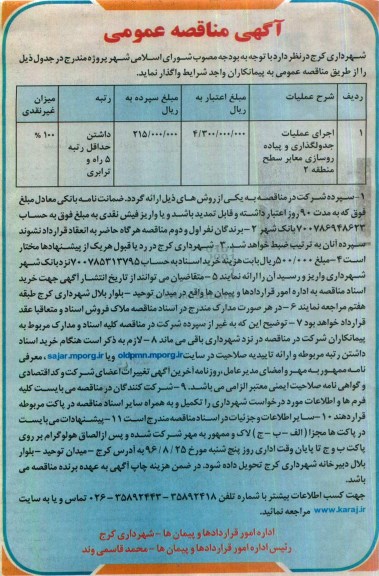 آگهی مناقصه عمومی
شهرداری کرج در نظر دارد با توجه به بودجه مصوب شورای اسلامی شهر پروژه مندرج در جدول ذیل
را از طریق مناقصه عمومی به پیمانکاران واجد شرایط واگذار نماید.
ردیف شرح عملیات مبلغ اعتبار به ریال مبلغ سپرده به ریال رتبه میزان غیرنقدی
۱ اجرای عملیات جدولگذاری و پیاده روسازی معابر سطح منطقه ۲ ۴/۳۰۰/۰۰۰/۰۰۰ ۲۱۵/۰۰۰/۰۰۰ داشتن حداقل رتبه ۵ راه و ترابری ۱۰۰ %
۱- سپرده شرکت در مناقصه به یکی از روش های ذیل ارائه گردد. ضمانت نامه بانکی معادل مبلغ
فوق که به مدت ۹۰ روز اعتبار داشته و قابل تمدید باشد و یا واریز فیش نقدی به مبلغ فوق به حساب
۷۰۰۷۸۶۹۴۸۶۲۳ بانک شهر ۲- برندگان نفر اول و دوم مناقصه هرگاه حاضر به انعقاد قرارداد نشوند
سپرده آنان به ترتیب ضبط خواهد شد. ۳- شهرداری کرج در رد یا قبول هریک از پیشنهادها مختار
است ۴- مبلغ ۵۰۰/۰۰۰ ریال بابت هزینه خرید اسناد به حساب ۷۰۰۷۸۵۳۱۳۷۹۵ نزد بانک شهر
شهرداری واریز و رسید آن را ارائه نمایند ۵- متقاضیان می توانند از تاریخ انتشار آگهی جهت خرید
اسناد مناقصه به اداره امور قراردادها و پیمان ها واقع در میدان توحید - بلوار بلال شهرداری کرج طبقه
هفتم مراجعه نمایند ۶- در هر صورت مدارک مندرج در اسناد مناقصه ملاک فروش اسناد و متعاقبا عقد
قرارداد خواهد بود ۷- توضیح این که به غیر از سپرده شرکت در مناقصه کلیه اسناد و مدارک مربوط به
پیمانکاران شرکت در مناقصه در نزد شهرداری باقی می ماند ۸- لازم به ذکر است هنگام خرید اسناد
داشتن رتبه مربوطه و ارائه تاییدیه صلاحیت در سایت oldpmn.mporg.ir و یا sajar.mporg.ir، معرفی
نامه ممهور به مهر و امضای مدیر عامل، روزنامه آخرین آگهی تغییرات اعضای شرکت و کد اقتصادی
و گواهی نامه صلاحیت ایمنی معتبر الزامی می باشد. ۹- شرکت کنندگان در مناقصه می بایست کلیه
فرم ها و اطلاعات مورد درخواست شهرداری را تکمیل و به همراه سایر اسناد مناقصه در پاکت مربوطه
قرار دهند ۱۰- سایر اطلاعات و جزئیات در اسناد مناقصه مندرج است ۱۱- پیشنهادات می بایست
در پاکت ها مجزا ( الف - ب - ج ) لاک و ممهور به مهر شرکت شده و پس از الصاق هولوگرام بر روی
پاکت ب و ج تا پایان وقت اداری روز پنج شنبه مورخ ۹۶/۸/۲۵ به آدرس کرج - میدان توحید - بلوار
بلال دبیرخانه شهرداری کرج تحویل داده شود. در ضمن هزینه چاپ آگهی به عهده برنده مناقصه می
باشد.
جهت کسب اطلاعات بیشتر با شماره تلفن ۳۵۸۹۲۴۱۸ - ۳۵۸۹۲۴۴۳-۰۲۶ تماس و یا به سایت
www.karaj.ir مراجعه نمائید.
اداره امور قراردادها و پیمان ها - شهرداری کرج
رئیس اداره امور قراردادها و پیمان ها - محمد قاسمی وند